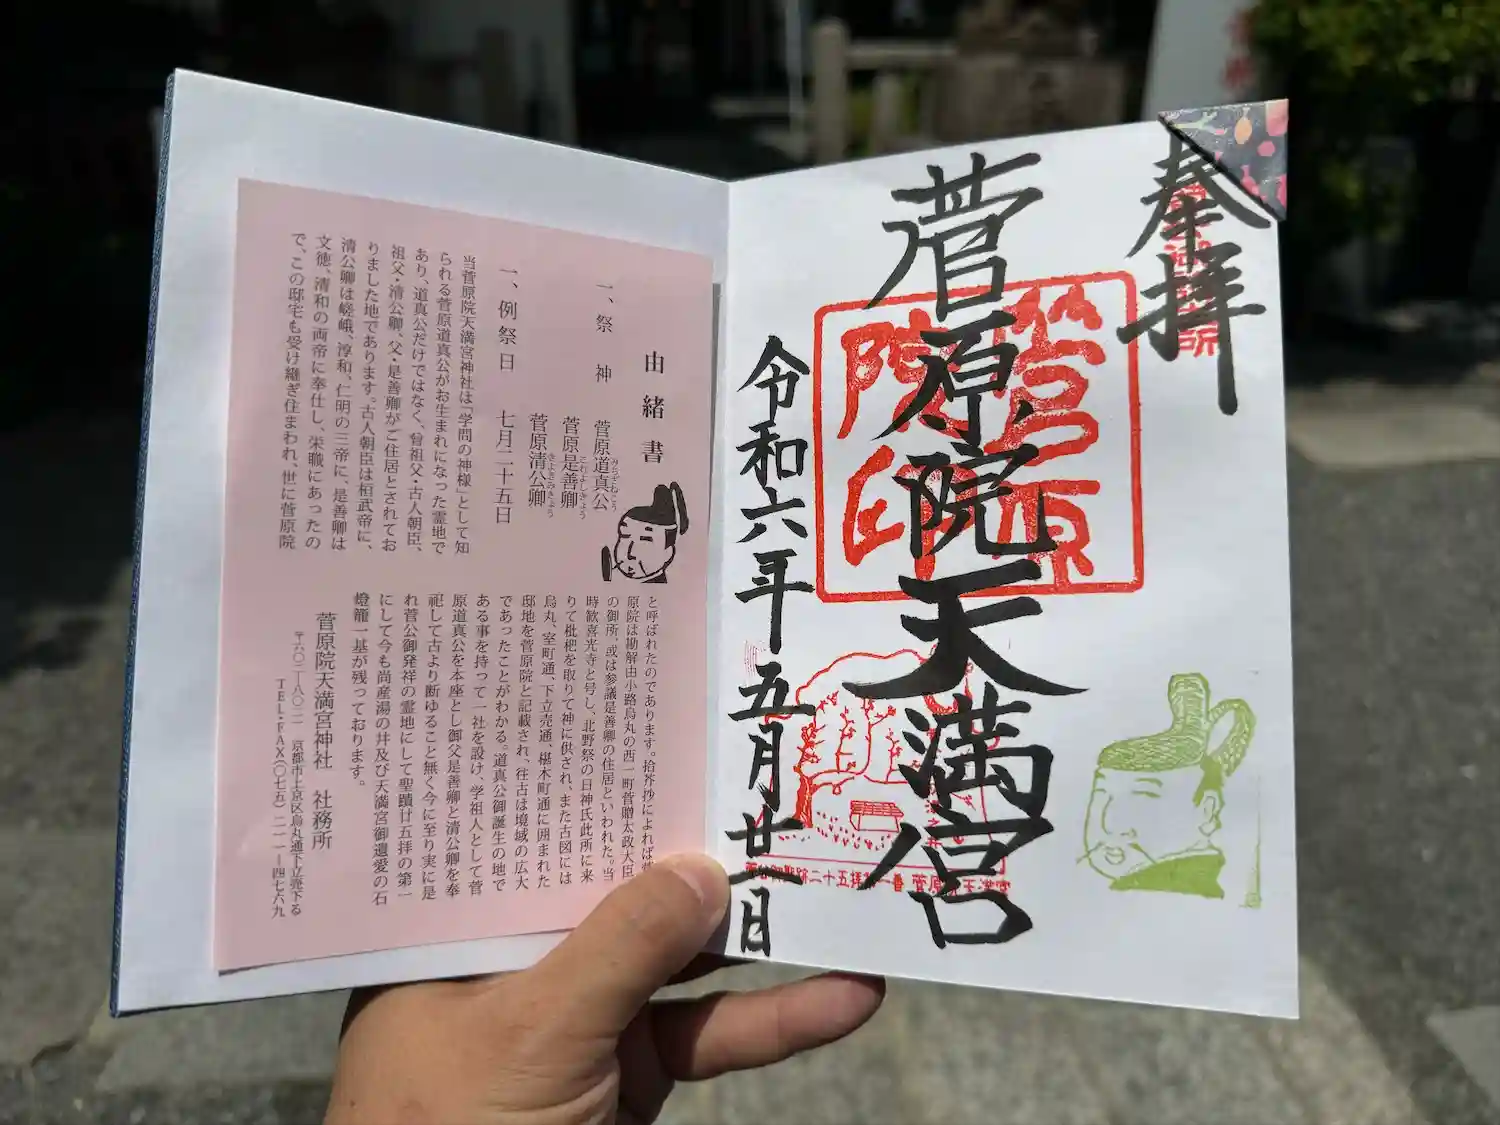 奉拝
菅原院天満宮
令和六年五月廿一日
菅原
院印
菅公御聖跡二十五拝第一番 菅原院天満宮
由緒書
一、祭　神　菅原道真公
菅原是善卿
菅原清公卿
一、例祭日　七月二十五日
当菅原院天満宮神社は「学問の神様」として知
られる菅原道真公がお生まれになった霊地で
あり、道真公だけではなく、曾祖父・古人朝臣、
祖父・清公卿、父・是善卿がご住居とされてお
りました地であります。古人朝臣は桓武帝に、
清公卿は嵯峨、淳和、仁明の三帝に、是善卿は
文徳、清和の両帝に奉仕し、栄職にあったの
で、この邸宅も受け継ぎ住まわれ、世に菅原院
と呼ばれたのであります。拾芥抄によれば菅
原院は勘解由小路烏丸の西一町菅贈太政大臣
の御所、或は参議是善卿の住居といわれた。当
時歓喜光寺と号し、北野祭の日神氏此所に来
りて枇杷を取りて神に供され、また古図には
烏丸、室町通、下立売通、椹木町通に囲まれた
邸地を菅原院と記載され、往古は境域の広大
であったことがわかる。道真公御誕生の地で
ある事を持って一社を設け、学祖人として菅
原道真公を本座とし御父是善卿と清公卿を奉
祀して古より断ゆること無く今に至り実に是
れ菅公御発祥の霊地にして聖蹟廿五拝の第一
にして今も尚産湯の井及び天満宮御遺愛の石
燈籠一基が残っております。
菅原院天満宮神社　社務所
〒六〇二-八〇二二　京都市上京区烏丸通下立売下る
TEL・FAX(〇七五)二一一-四七六九